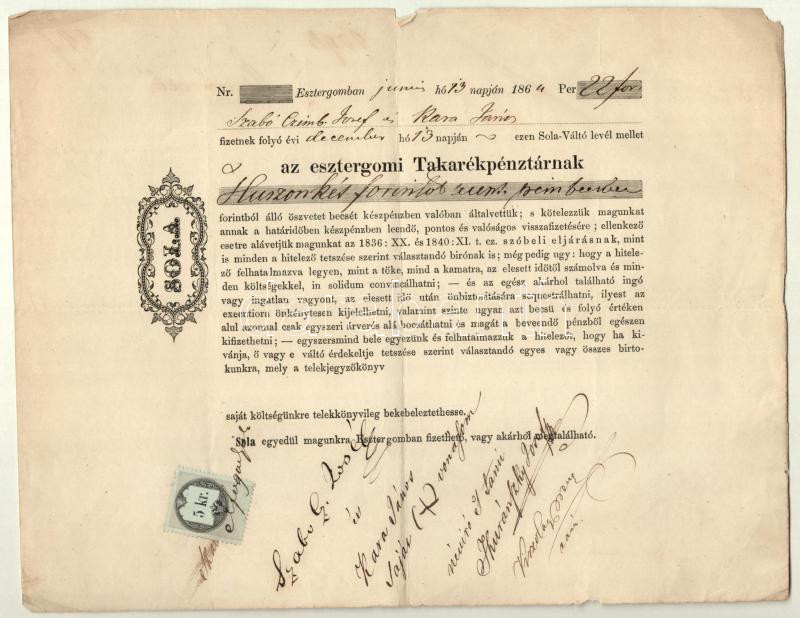 Nr. Esztergomban junius hó 13 napján 1864 Per 22 for.
Szabó Czimb. Josef és Kara János
fizetnek folyó évi december hó 13 napján ezen Sola-Váltó levél mellet
az esztergomi Takarékpénztárnak
Huszonkét forintot
forintból álló öszvetet becsét készpénzben valóban általvettük; s kötelezzük magunkat
annak a határidőben készpénzben leendő, pontos és valóságos visszafizetésére; ellenkező
esetre alávetjük magunkat az 1836: XX. és 1840: XI. t. cz. szóbeli eljárásnak, mint
is minden a hitelező tetszése szerint választandó birónak is; még pedig ugy: hogy a hitele-
ző felhatalmazva legyen, mint a tőke, mind a kamatra, az elesett időtől számolva és min-
den költségekkel, in solidum convincálhatni; — és az egész akárhol található ingó
vagy ingatlan vagyont, az elesett idő után önbiztosítására sequostrálhatni, ilyest az
executiora önkénytesen kijelelhetni, valamint szinte ugyan azt becsü és folyó értéken
alul azonnal csak egyszeri árverés alá bocsáthatni és magát a beveendő pénzből egészen
kifizethetni; — egyszersmind bele egyezünk és felhatalmazzuk a hitelezőt, hogy ha ki-
vánja, ő vagy e váltó érdekeltje tetszése szerint választandó egyes vagy összes birto-
kunkra, mely a telekjegyzőkönyv
saját költségünkre telekkönyvileg bekebeleztethesse.
Sola egyedül magunkra Esztergomban fizethető, vagy akárhol megtalálható.
SOLA
5 kr.
Szabo
és
Kara János
saját (X) vonásom
néviró s tanú